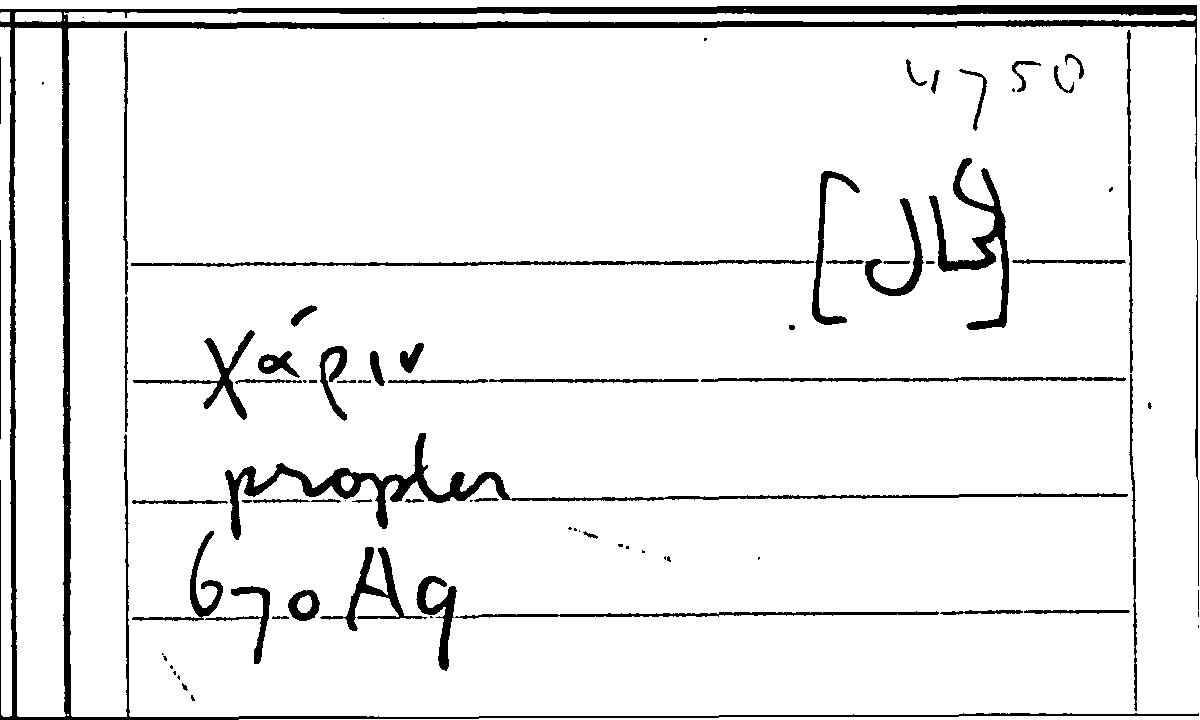 4750
χάριν
propter
670 Aq